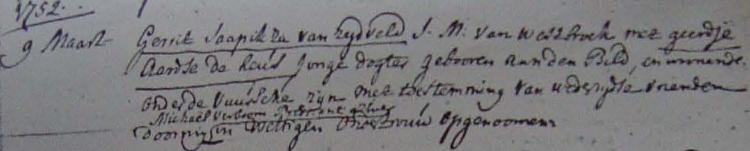 1752.
9 Maart Gerrit Jaapikze van Zijdveld J: M: van Westbroek met geertje
Aartse de heus Jonge dogter gebooren aan den Bild, en wonende
onder de Vuursche zijn met toestemming van wederzijdse vrienden
Michael Verloren Predikant alhier
door mij in Wettigen Ondertrouw opgenoomen